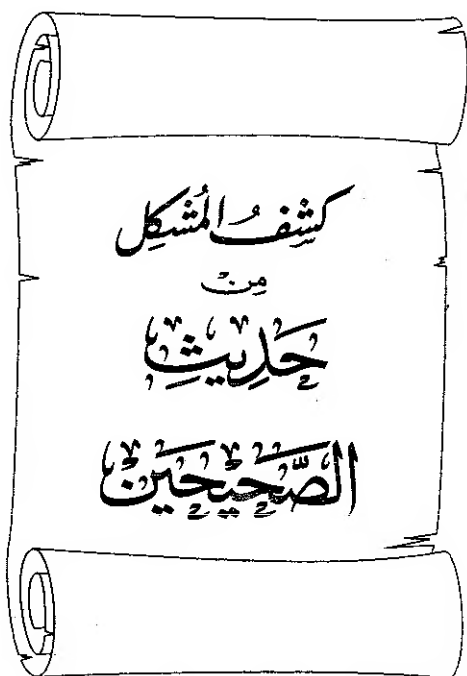 كشف المُشكِل
مِن
حَدِيثِ
الصَّحِيحَيْن